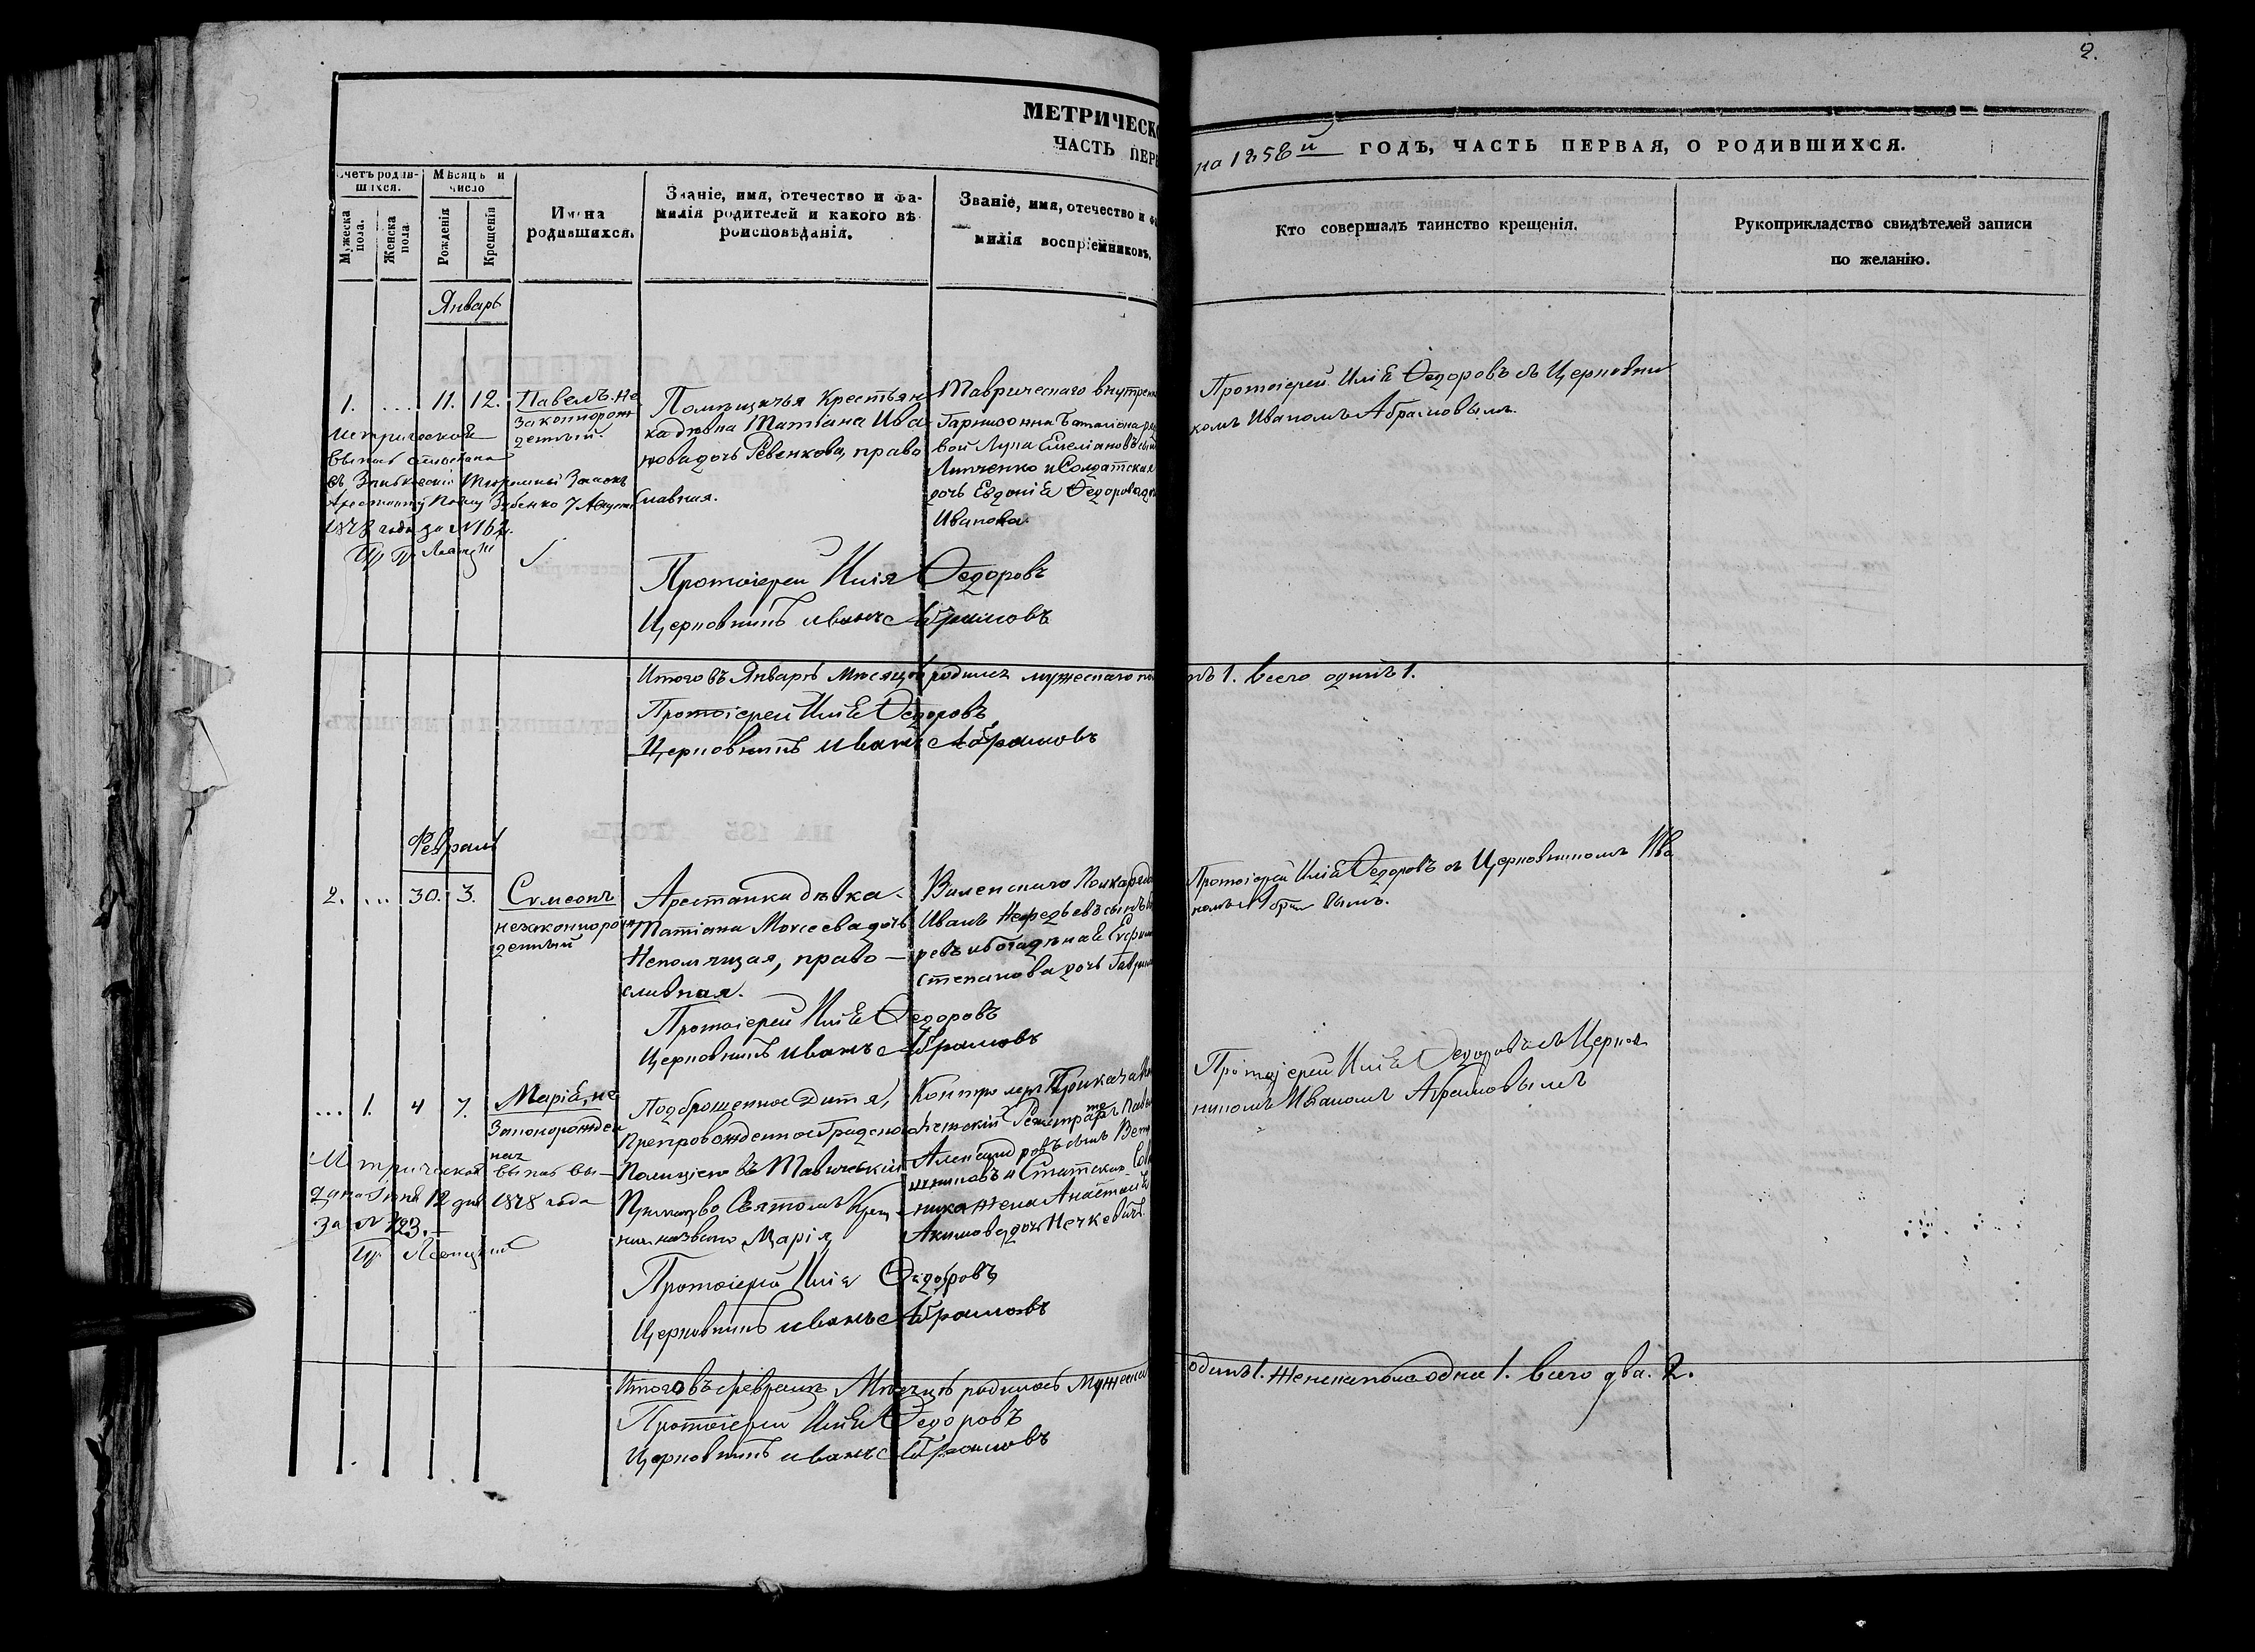 2.
МЕТРИЧЕСК
ЧАСТЬ ПЕРВ
на 1858й ГОДЪ, ЧАСТЬ ПЕРВАЯ, О РОДИВШИХСЯ.
Счетъ родив-
шихся.
Мужеска
пола.
Женска
пола.
Мѣсяцъ и
число
Рожденія
Крещенія
Имена
родившихся.
Званіе, имя, отечество и фа-
милія родителей и какого вѣ-
роисповѣданія.
Званіе, имя, отечество и фа
милія воспріемниковъ,
Кто совершалъ таинство крещенія.
Рукоприкладство свидѣтелей записи
по желанію.
Январь
1. ... 11. 12.
Павелъ, не
законнорож
денный.
Помѣщичья Крестьян
ка дѣвка Татіана Ива
нова дочь Ревенкова, право
славная.
Таврическаго внутрен
Гарнизоннаго баталіона ря
вой Лука Емеліановъ сынъ
Липченко и Солдатская
дочь Евдокія Ѳедорова до
Иванова.
Протоіерей Илія Ѳедоровъ съ Церковни
комъ Иваномъ Абрамовымъ.
Метрическая
выпись отослана
въ Тюремный Замокъ
Арестанту Павлу 7 Августа
1878 года за №162.
Протоіерей Илія Ѳедоровъ
Церковникъ Иванъ Абрамовъ
Итого въ Январѣ Мѣсяцѣ родился мужескаго по лъ 1. всего одинъ 1.
Протоіерей Илія Ѳедоровъ
Церковникъ Иванъ Абрамовъ
Февраль
2. ... 30. 3.
Сѵмеонъ
незаконнорож
денный
Арестантка дѣвка
Татіана Моисеева дочь
Непомнящая, право-
славная.
Виленскаго Полка рядо
Иванъ Нефедьевъ сынъ
Степанова дочь Гаври
Протоіерей Илія Ѳедоровъ съ Церковникомъ Ива
номъ Абрамовымъ.
Протоіерей Илія Ѳедоровъ
Церковникъ Иванъ Абрамовъ
... 1. 4 7.
Марія, не
законорожден
ная
Подброшенное Дитя,
Препровожденное Градскою
Полиціею въ
Святомъ Крещ
названо Марія
Контролеръ Приказа
Регистраторъ Павел
Александровъ сынъ
и Статскаго Сов
ника жена Анастасія
Акимова дочь Нечкевичъ.
Протоіерей Илія Ѳедоровъ съ Церков
никомъ Иваномъ Абрамовымъ
Метрическая выпись вы-
дана Іюня 12 дня 1878 года
за № 123.
Протоіерей Илія Ѳедоровъ
Церковникъ Иванъ Абрамовъ
Итого въ Февралѣ Мѣсяцѣ родилось Мужеска одинъ 1. Женска пола одна 1. всего два. 2.
Протоіерей Илія Ѳедоровъ
Церковникъ Иванъ Абрамовъ